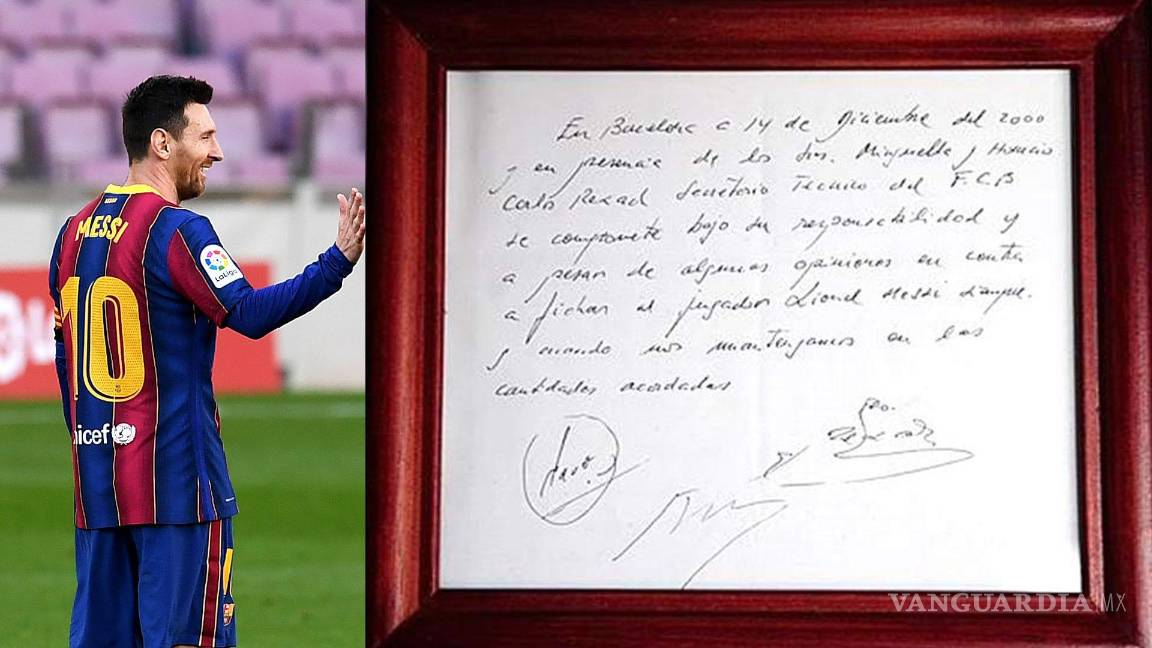 MESSI
10
unicef
LaLiga
En Barcelona a 14 de Diciembre del 2000
y en presencia de los Srs. Minguella y Horacio
Carlos Rexach Secretario Tecnico del F.C.B
se compromete bajo su responsabilidad y
a pesar de algunas opiniones en contra
a fichar al jugador Lionel Messi siempre
y cuando nos mantengamos en las
cantidades acordadas
VANGUARDIA MX